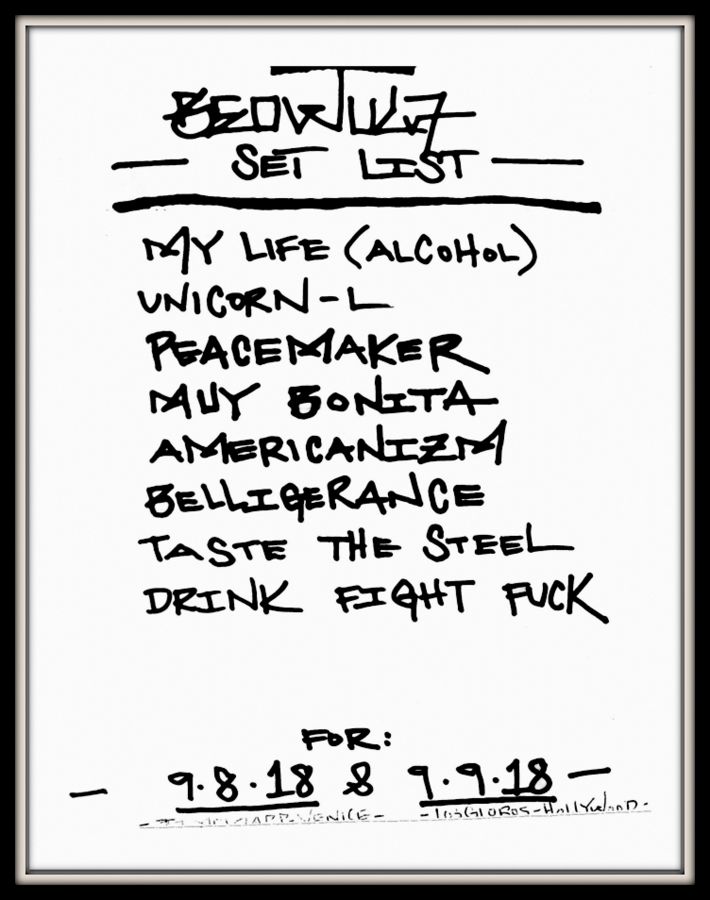 BEOWÜLF
— SET LIST —
MY LIFE (ALCOHOL)
UNICORN-L
PEACEMAKER
MUY BONITA
AMERICANIZM
BELLIGERANCE
TASTE THE STEEL
DRINK FIGHT FUCK
FOR:
— 9.8.18 & 9.9.18 —
VENICE - HOLLYWOOD